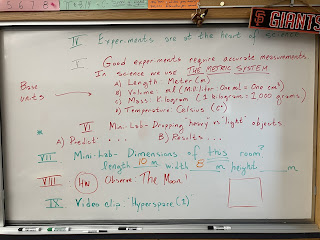 5 6 7 8
GIANTS
IV Experiments are at the heart of science
V Good experiments require accurate measurements.
In science we use THE METRIC SYSTEM
Base units
a) Length: Meter (m)
b) Volume: ml (Milliliter One ml = One cm³)
c) Mass: Kilogram (1 kilogram = 1000 grams)
d) Temperature: Celsius (C°)
VI Mini-Lab - Dropping "heavy" vs "light" objects
A) Predict . . . B) Results . . .
VII Mini-Lab: Dimensions of this room?
length 10 m width 8 m height m
VIII HW Observe: The Moon!
IX Video clip: "Hyperspace" (1)